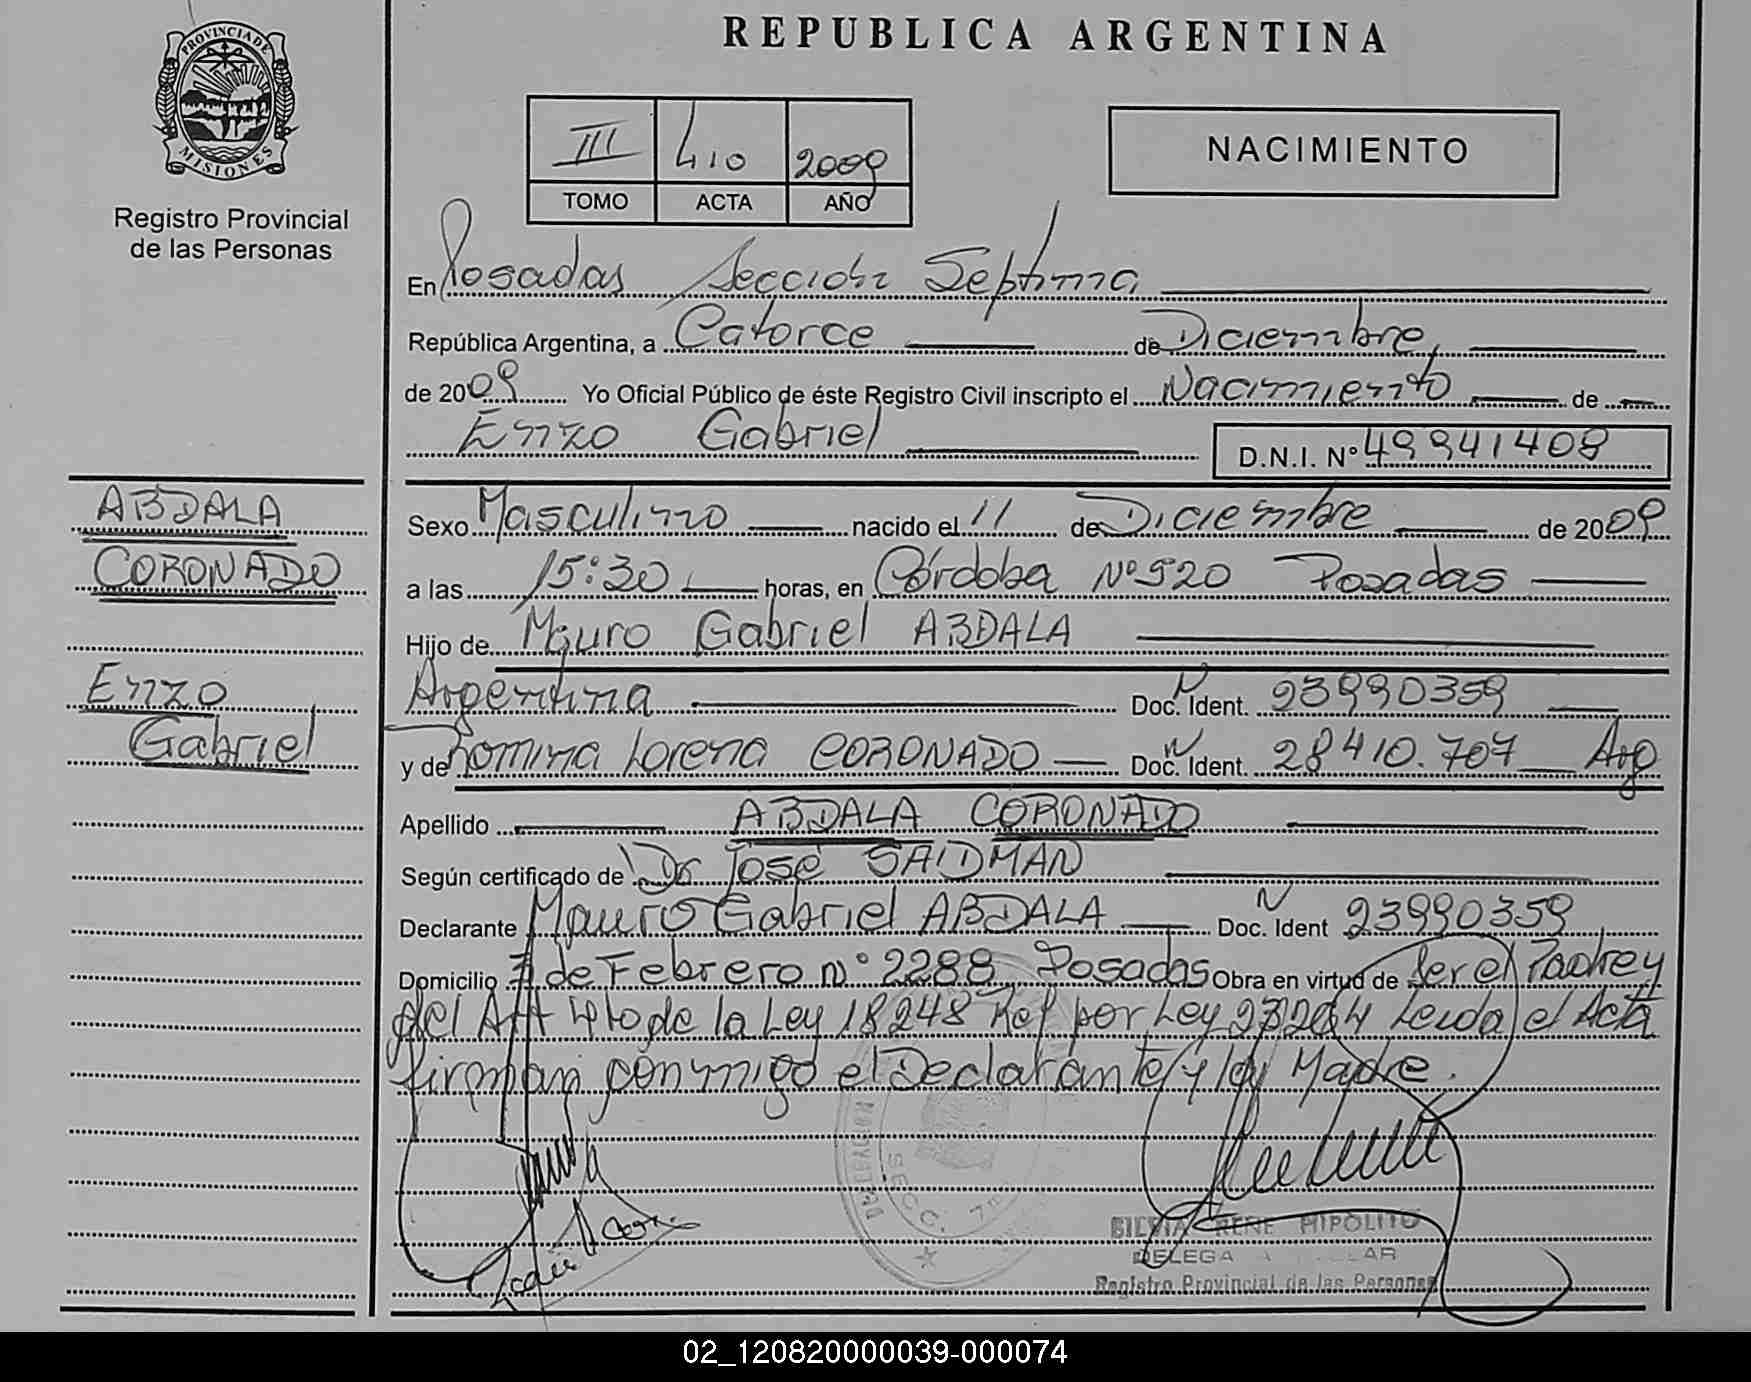 PROVINCIA DE
MISIONES
Registro Provincial
de las Personas
REPUBLICA ARGENTINA
III 410 2009
TOMO ACTA AÑO
NACIMIENTO
En Posadas Sección Septima
República Argentina, a Catorce de Diciembre,
de 2009 Yo Oficial Público de éste Registro Civil inscripto el Nacimiento de
Enzo Gabriel D.N.I. Nº 49941408
ABDALA
CORONADO
Enzo
Gabriel
Sexo Masculino nacido el 11 de Diciembre de 2009
a las 15:30 horas, en Córdoba Nº 920 Posadas
Hijo de Mauro Gabriel ABDALA
Argentina Doc. N Ident. 23990359
y de Romina Lorena CORONADO Doc. N Ident. 28410.707 Arg
Apellido ABDALA CORONADO
Según certificado de Dr José SAIDMAN
Declarante Mauro Gabriel ABDALA Doc. N Ident 23990359
Domicilio de Febrero Nº 2288 Posadas Obra en virtud de Ser el Padre y
del Art 4to de la Ley 18248 Ref por Ley Leida el Acta
firman conmigo el Declarante y la Madre.
DELEGACION
SECC. 7
SILVIA RENE HIPOLITO
DELEGA
Registro Provincial de las Personas
02_120820000039-000074